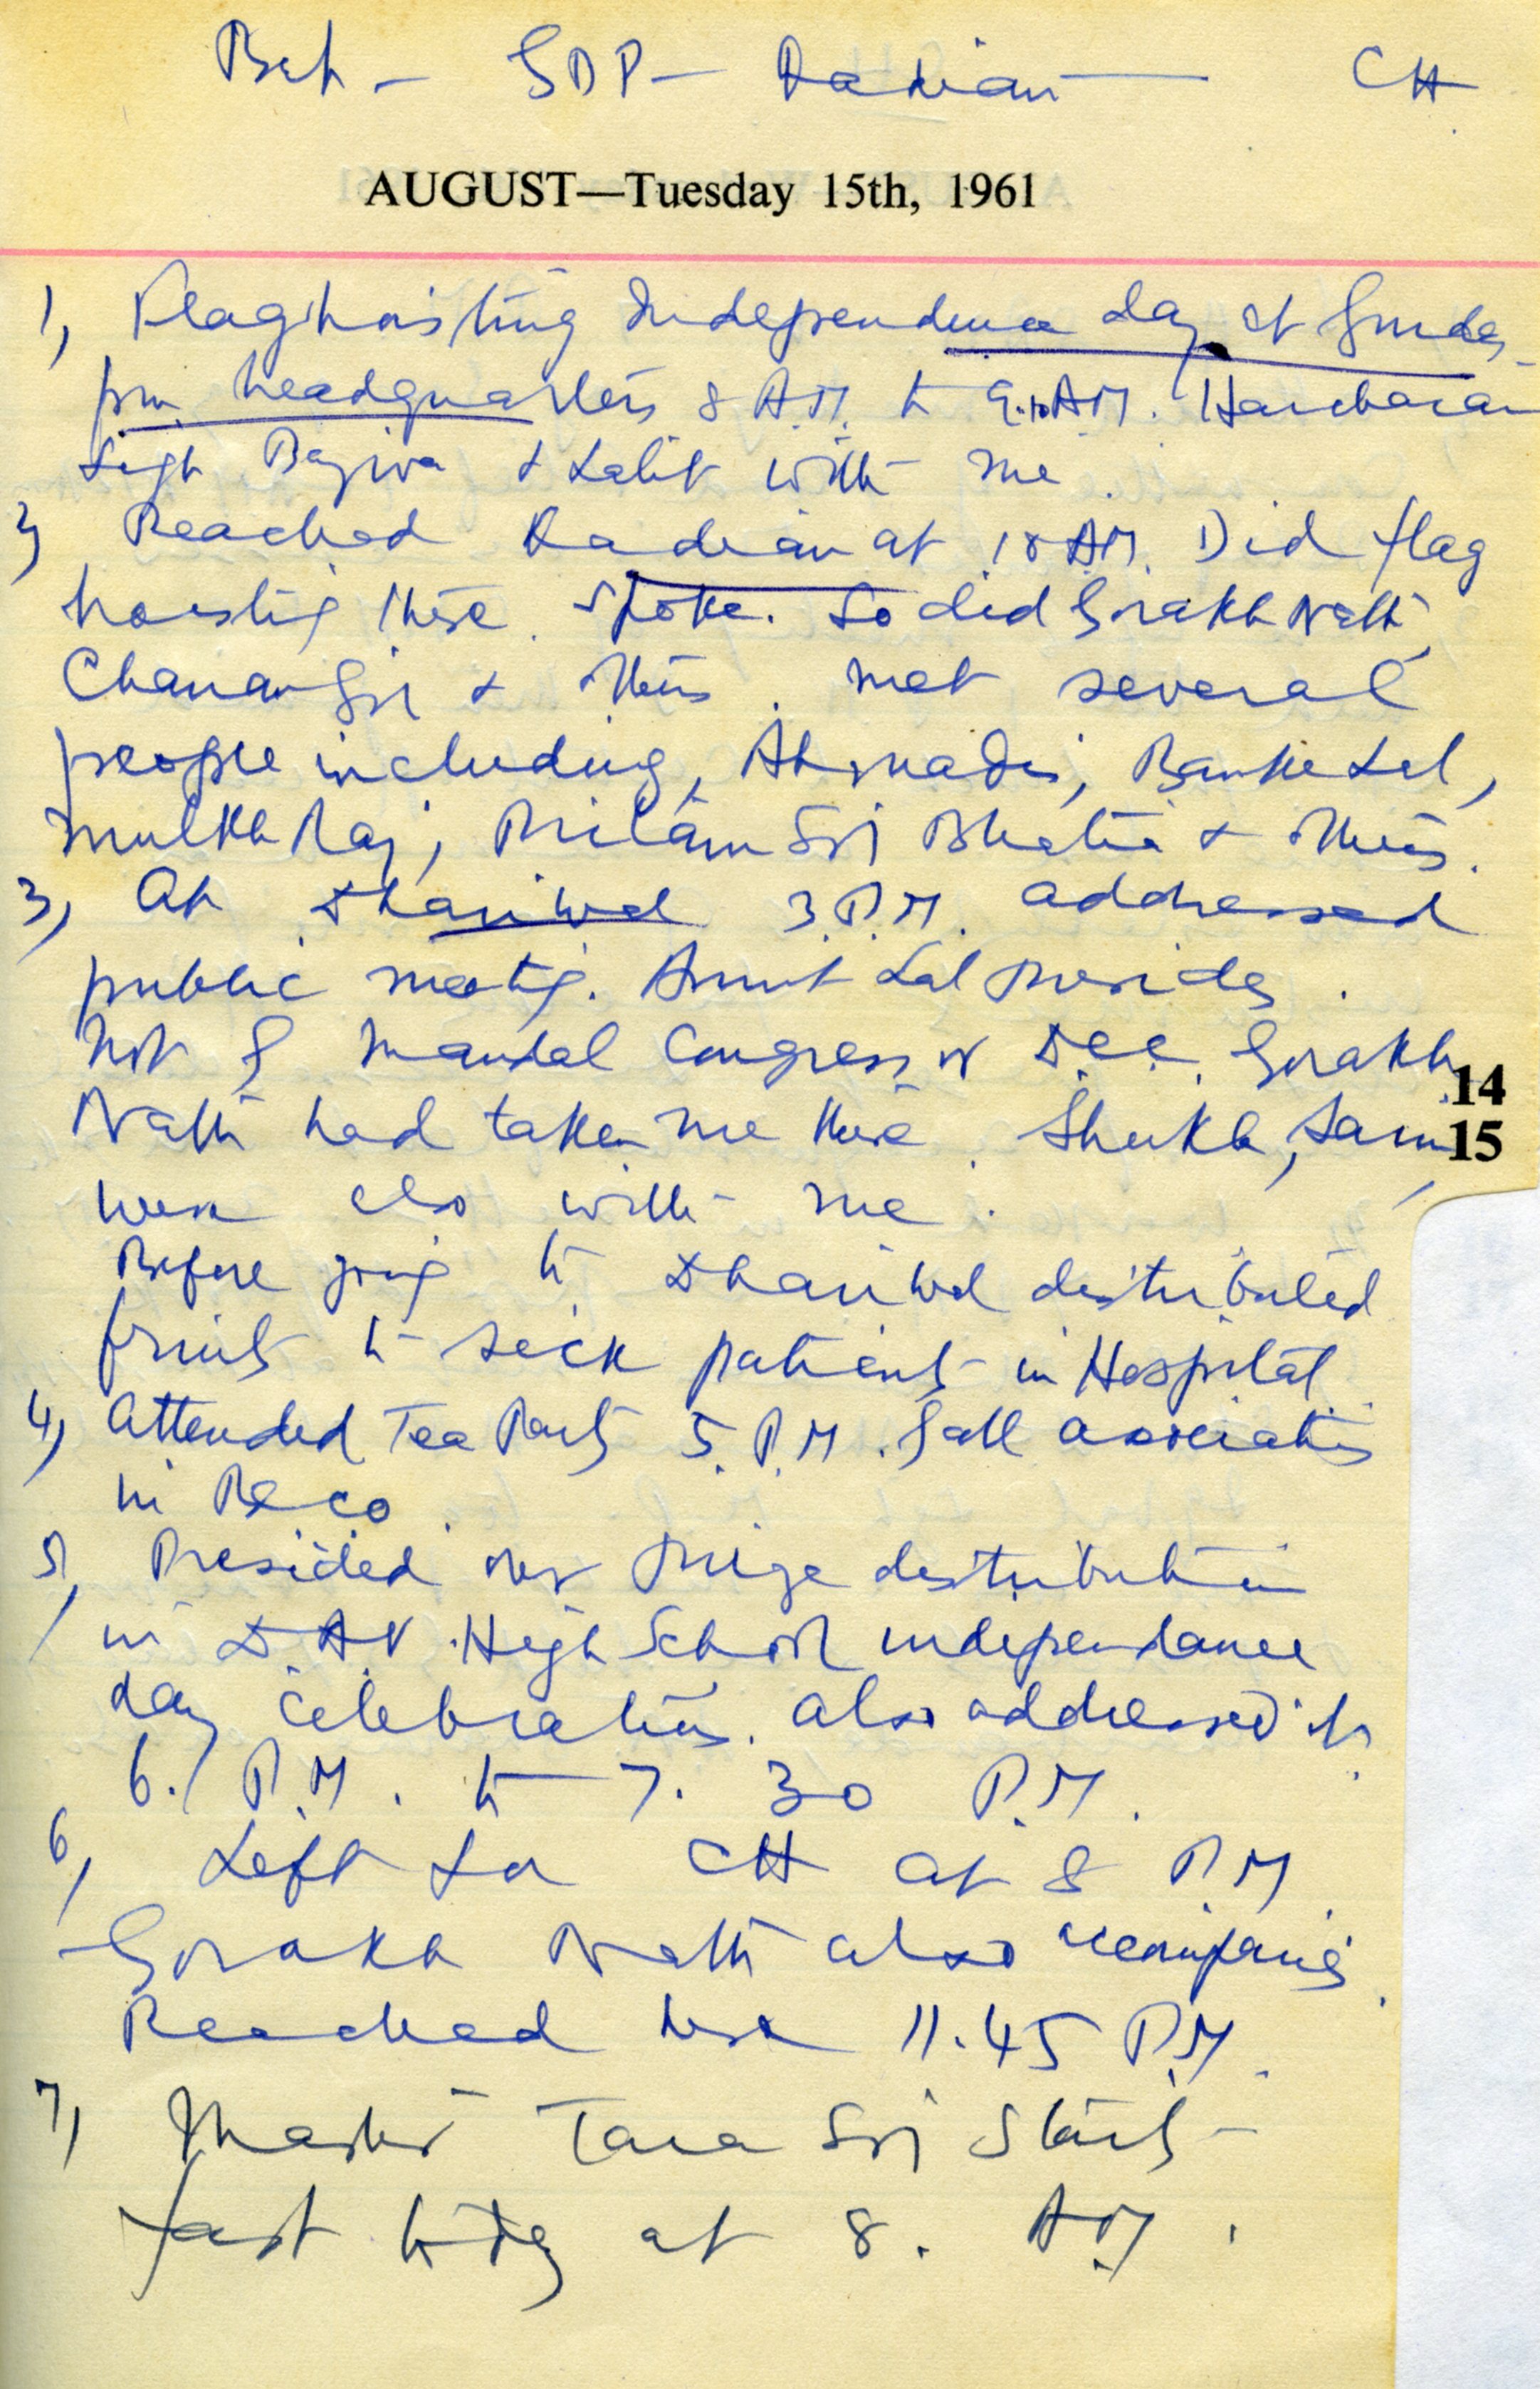 Bat - GDP - Kadian - CH
AUGUST—Tuesday 15th, 1961
1, Flag hoisting Independence day at Gurdas
pur headquarters 8 A.M. to 9. AM. Harcharan
Singh Bajwa & Lalit with me.
2, Reached Kadian at 10 AM. Did flag
hoisting there. Spoke. So did Gorakh Nath,
Chanan Sgh & others. Met several
people including, Ahmadis, Banke Lal,
Mulkh Raj, Pritam Sgh Bhatia & others.
3, At Dhariwal 3 P.M. addressed
public meeting. Amrit Lal presides.
Not of Mandal Congress or D.C.C. Gorakh
14
Nath had taken me there. Shukla,
15
were also with me.
Before going to Dhariwal distributed
fruits to sick patients in Hospital.
4, Attended Tea Party 5. P.M. of all associations
in
5, Presided over prize distribution
in D.A.V. High School independance
day celebrations. Also addressed it.
6. P.M. to 7. 30 P.M.
6, Left for CH at 8 P.M.
Gorakh Nath also accompanied.
Reached here 11.45 P.M.
7, Master Tara Sgh starts
fast today at 8. A.M.